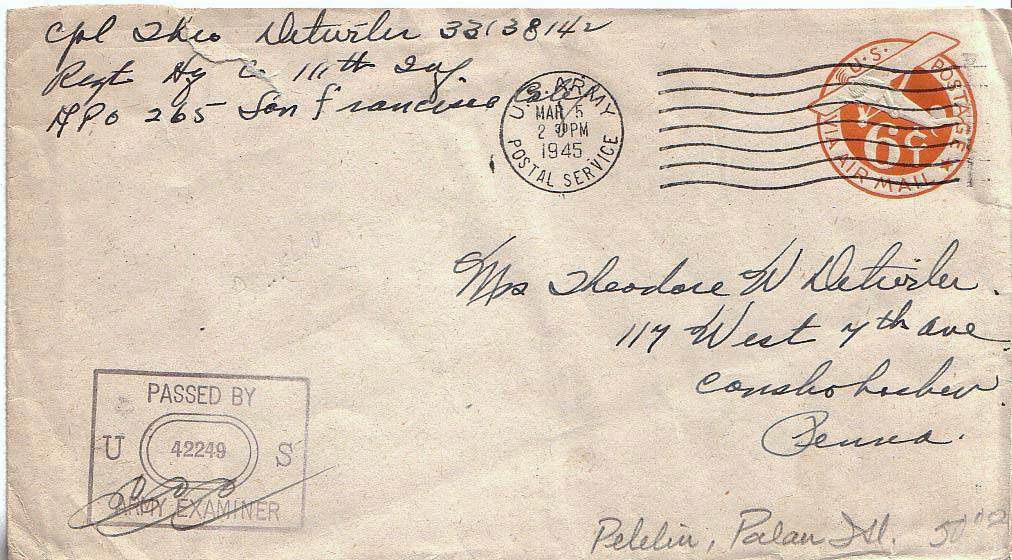 Cpl Theo Detwiler 33138142
Regt Hq Co. 111th Inf.
APO 265 San Francisco Calif
U.S. ARMY
MAR 5
2 PM
1945
POSTAL SERVICE
U.S. POSTAGE
6 C
VIA AIR MAIL
Mrs Theodore W Detwiler.
117 West 7th ave.
Conshohocken
Penna.
PASSED BY
U 42249 S
ARMY EXAMINER
Pelelin, Palau Isl.